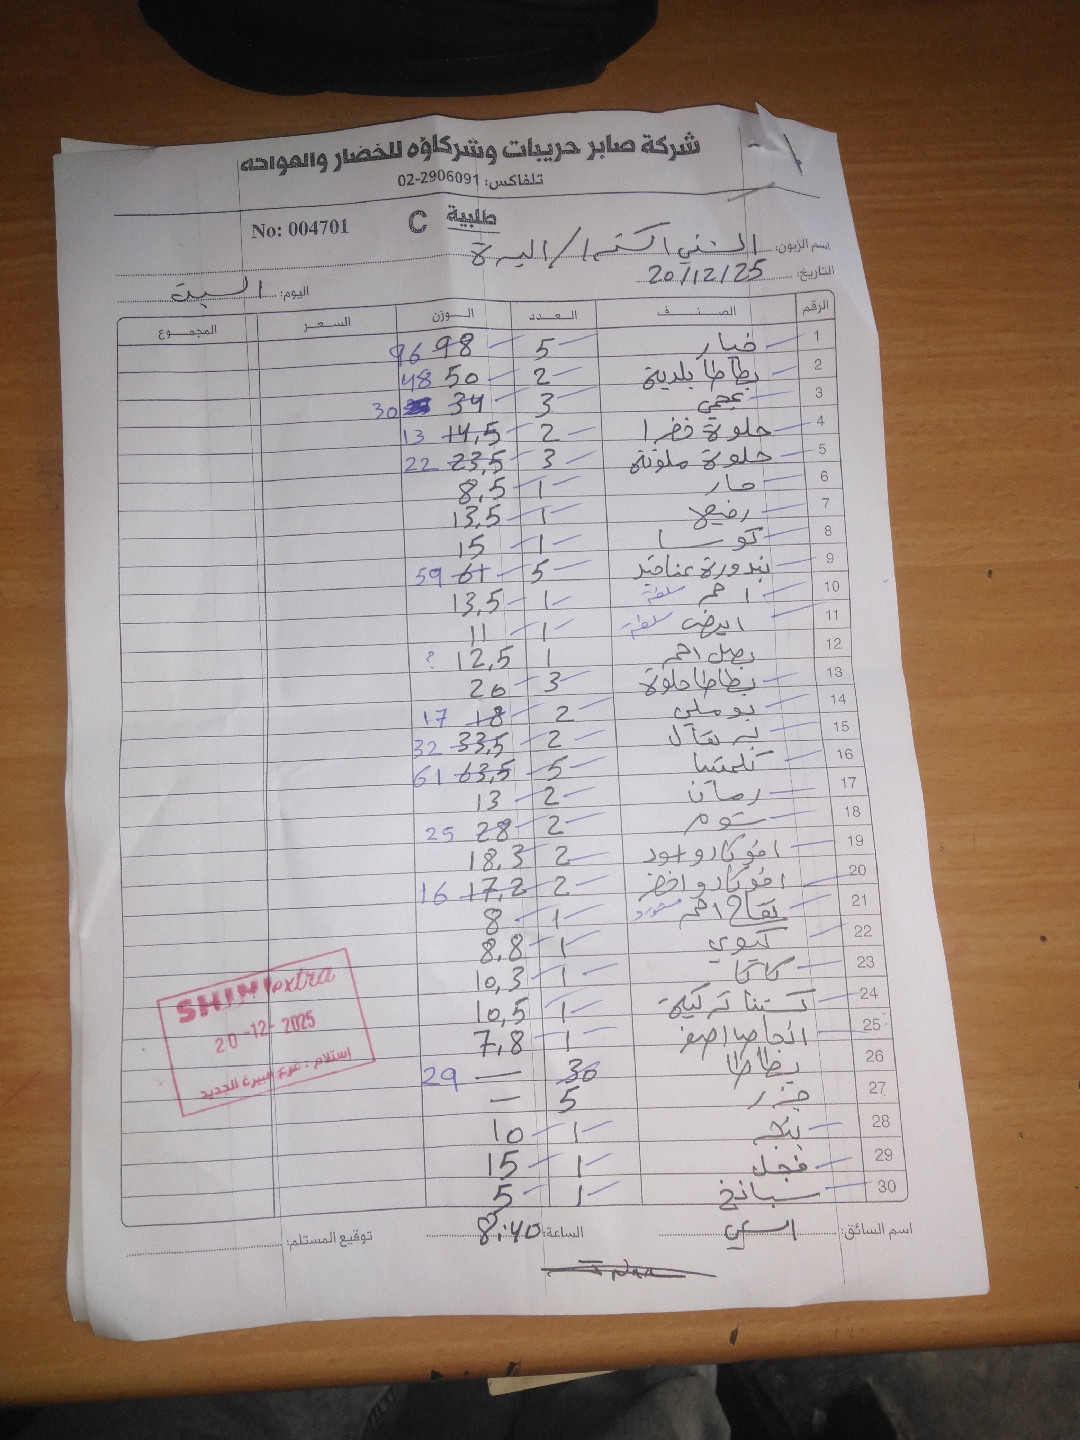 شركة صابر حريبات وشركاؤه للخضار والفواكه
تلفاكس: 02-2906091
طلبية C No: 004701
اسم الزبون: الشني اكسترا / البيرة
التاريخ: 20/12/25
اليوم: السبت
الرقم الصنف العدد الوزن السعر المجموع
1 خيار 5 98 96
2 بطاطا بلدية 2 50 48
3 عجمي 3 34 30
4 حلوة خضرا 2 14,5 13
5 حلوة ملونة 3 23,5 22
6 حار 1 8,5
7 رفيع 1 13,5
8 كوسا 1 15
9 بندورة عناقيد 5 61 59
10 احمر سلطة 1 13,5
11 ابيض سلطة 1 11
12 بصل احمر 1 12,5 ?
13 بطاطا حلوة 3 26
14 بوملي 2 18 17
15 برتقال 2 33,5 32
16 كلمنتينا 5 63,5 61
17 رمان 2 13
18 ثوم 2 28 25
19 افوكادو اسود 2 18,3
20 افوكادو اخضر 2 17,2 16
21 تفاح احمر 1 8
22 كيوي 1 8,8
23 كاكا 1 10,3
24 كستنا تركية 1 10,5
25 انجاص اصفر 1 7,8
26 بطاطا 30 — 29
27 جزر 5 —
28 بنجر 1 10
29 فجل 1 15
30 سبانخ 1 5
SHINI extra
20-12-2025
استلام: فرع البيرة الجديد
اسم السائق: الساعة: 8:40 توقيع المستلم: